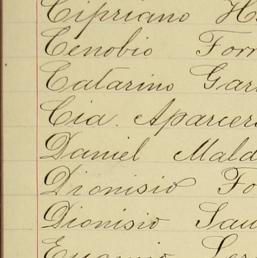 Cipriano H
Cenobio Forn
Catarino Gar
Cia. Aparcer
Daniel Mald
Dionisio Fo
Dionisio Sau
Eugenio Ser